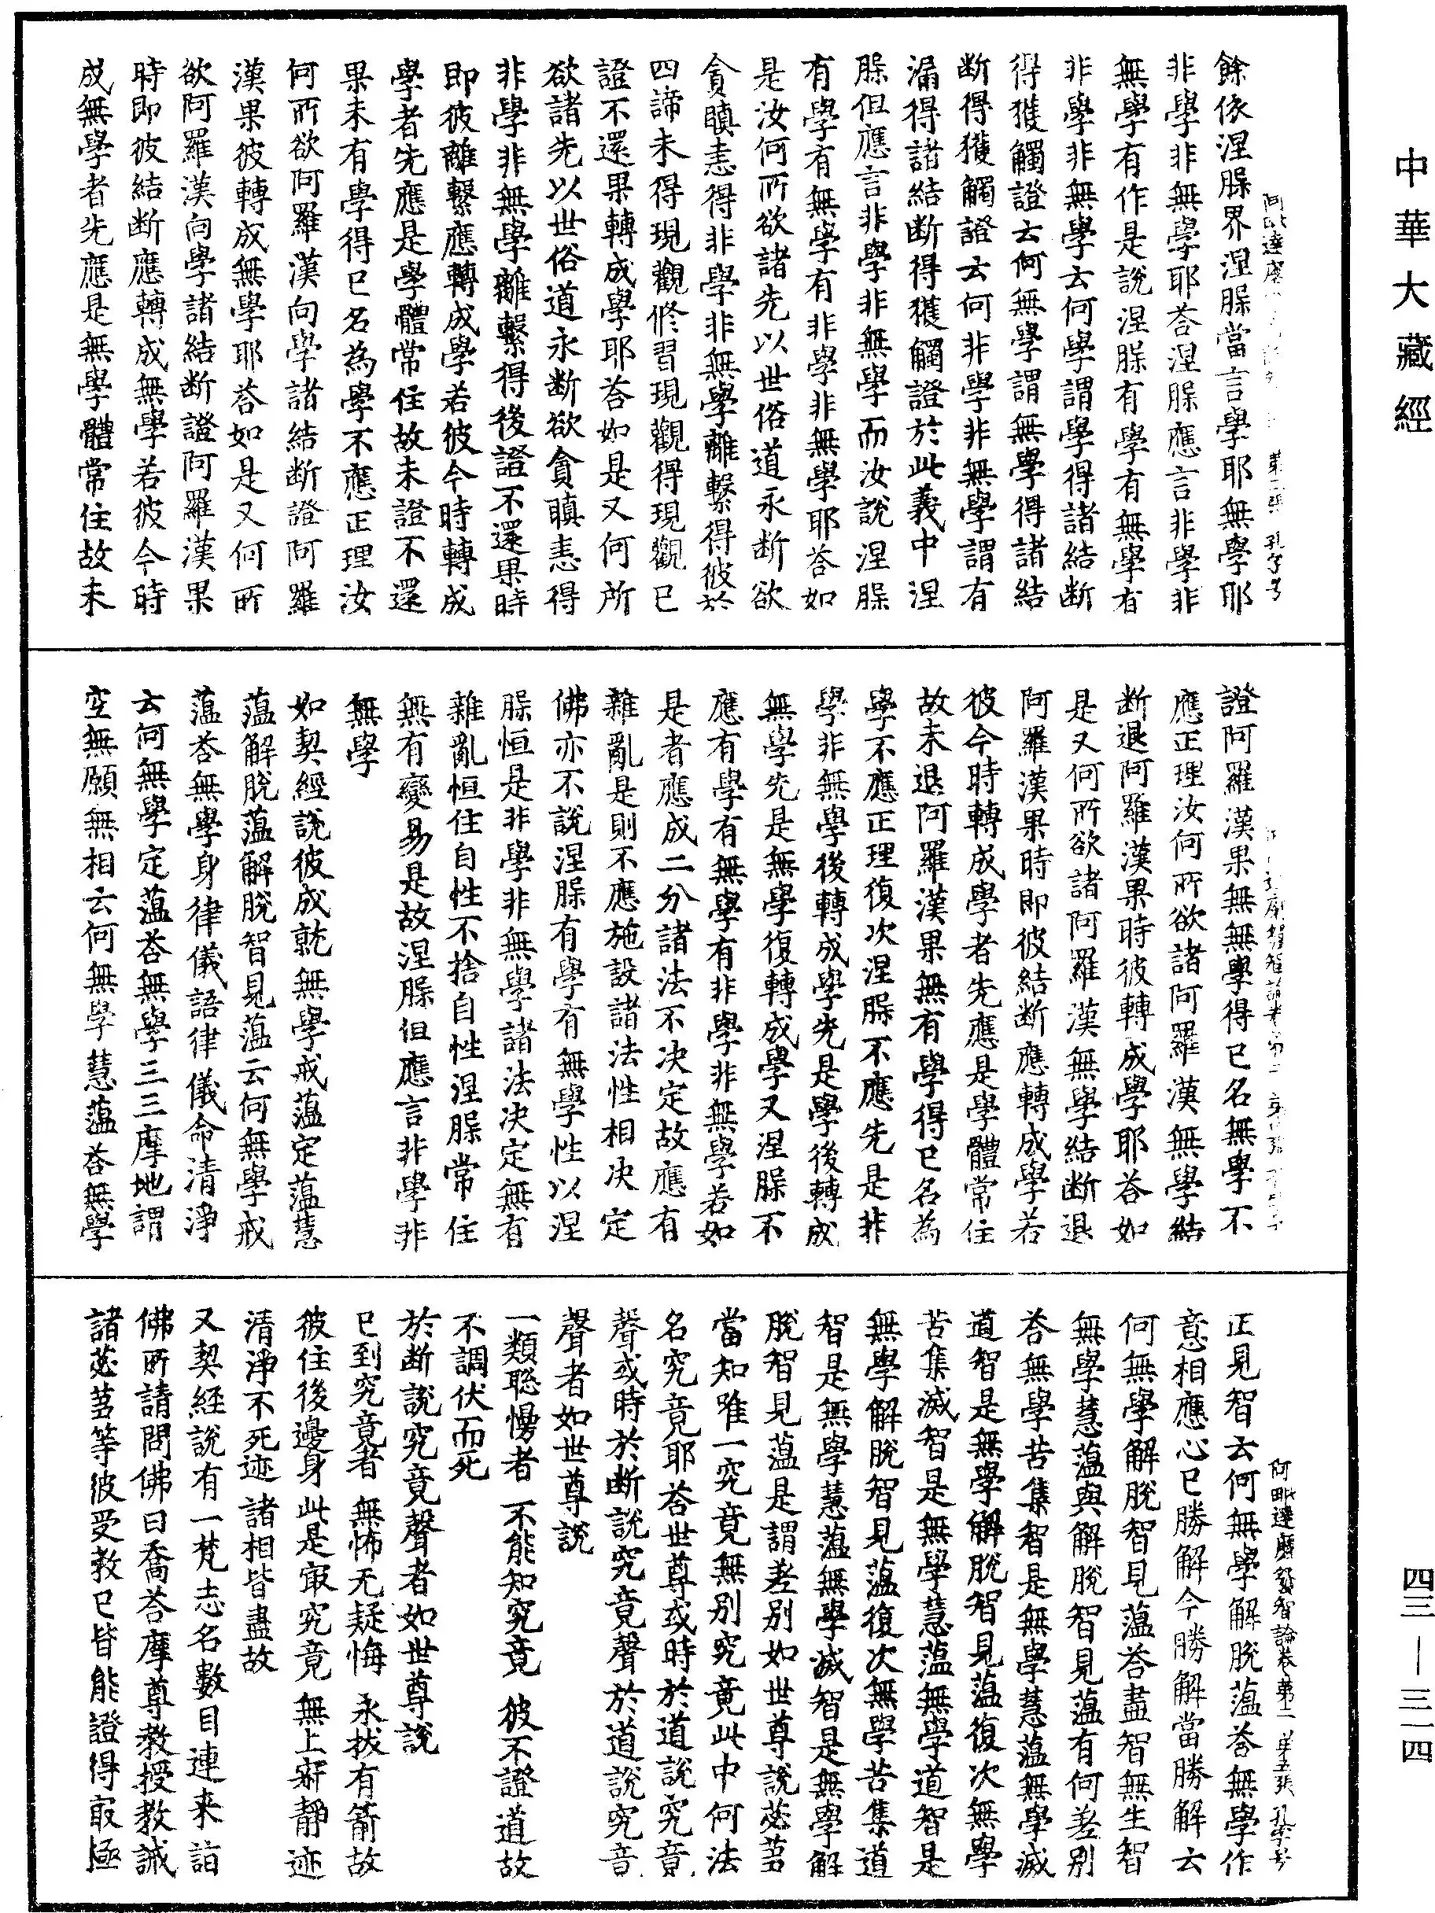 中華大藏經
餘依涅槃界涅槃當言學耶無學耶
非學非無學耶荅涅槃應言非學非
無學有作是說涅槃有學有無學有
非學非無學云何學謂學得諸結斷
得獲觸證云何無學謂無學得諸結
斷得獲觸證云何非學非無學謂有
漏得諸結斷得獲觸證於此義中涅
槃但應言非學非無學而汝說涅槃
有學有無學有非學非無學耶荅如
是汝何所欲諸先以世俗道永斷欲
貪瞋恚得非學非無學離繫得彼於
四諦未得現觀修習現觀得現觀已
證不還果轉成學耶荅如是又何所
欲諸先以世俗道永斷欲貪瞋恚得
非學非無學離繫得後證不還果時
即彼離繫應轉成學若彼今時轉成
學者先應是學體常住故未證不還
果未有學得已名為學不應正理汝
何所欲阿羅漢向學諸結斷證阿羅
漢果彼轉成無學耶荅如是又何所
欲阿羅漢向學諸結斷證阿羅漢果
時即彼結斷應轉成無學若彼今時
成無學者先應是無學體常住故未
證阿羅漢果無無學得已名無學不
應正理汝何所欲諸阿羅漢無學結
斷退阿羅漢果時彼轉成學耶荅如
是又何所欲諸阿羅漢無學結斷退
阿羅漢果時即彼結斷應轉成學若
彼今時轉成學者先應是學體常住
故未退阿羅漢果無有學得已名為
學不應正理復次涅槃不應先是非
學非無學後轉成學先是學後轉成
無學先是無學復轉成學又涅槃不
應有學有無學有非學非無學若如
是者應成二分諸法不決定故應有
雜亂是則不應施設諸法性相決定
佛亦不說涅槃有學有無學性以涅
槃恒是非學非無學諸法決定無有
雜亂恒住自性不捨自性涅槃常住
無有變易是故涅槃但應言非學非
無學
如契經說彼成就無學戒蘊定蘊慧
蘊解脫蘊解脫智見蘊云何無學戒
蘊荅無學身律儀語律儀命清淨
云何無學定蘊荅無學三三摩地謂
空無願無相云何無學慧蘊荅無學
正見智云何無學解脫蘊荅無學作
意相應心已勝解今勝解當勝解云
何無學解脫智見蘊荅盡智無生智
無學慧蘊與解脫智見蘊有何差別
荅無學苦集智是無學慧蘊無學滅
道智是無學解脫智見蘊復次無學
苦集滅智是無學慧蘊無學道智是
無學解脫智見蘊復次無學苦集道
智是無學慧蘊無學滅智是無學解
脫智見蘊是謂差別如世尊說苾芻
當知唯一究竟無別究竟此中何法
名究竟耶荅世尊或時於道說究竟
聲或時於斷說究竟聲於道說究竟
聲者如世尊說
一類聰慢者　不能知究竟　彼不證道故
不調伏而死
於斷說究竟聲者如世尊說
已到究竟者　無怖无疑悔　永拔有箭故
彼住後邊身　此是㝡究竟　無上寂靜迹
清淨不死迹　諸相皆盡故
又契經說有一梵志名數目連来詣
佛所請問佛曰喬荅摩尊教授教誡
諸苾芻等彼受教已皆能證得㝡極
阿毗達磨發智論卷第二　第五張　孔字号
四三—三一四